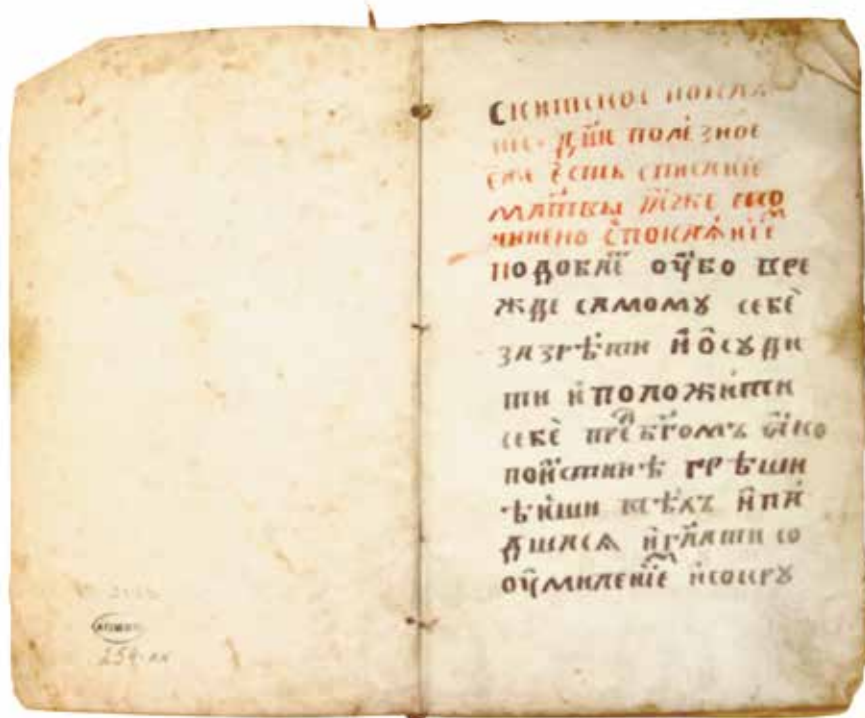 Скитское покая
ние. дш҃и полезное
сѐ є҆сть списаніе
мл҃твы ꙗ҆же
чинено с̾покаѧніе
подобаї оу҆бо пре
жде самомꙋ себѐ
зазрѣти и҆ѻ҆сꙋди
ти и҆положити
себѐ преⷣ бг҃омъ
пои҆стинѣ грѣшн
ѣ҆йши всѣхъ и҆па
дшасѧ и҆гл҃ати со
оу҆миленїе и҆сокрꙋ
254-лл